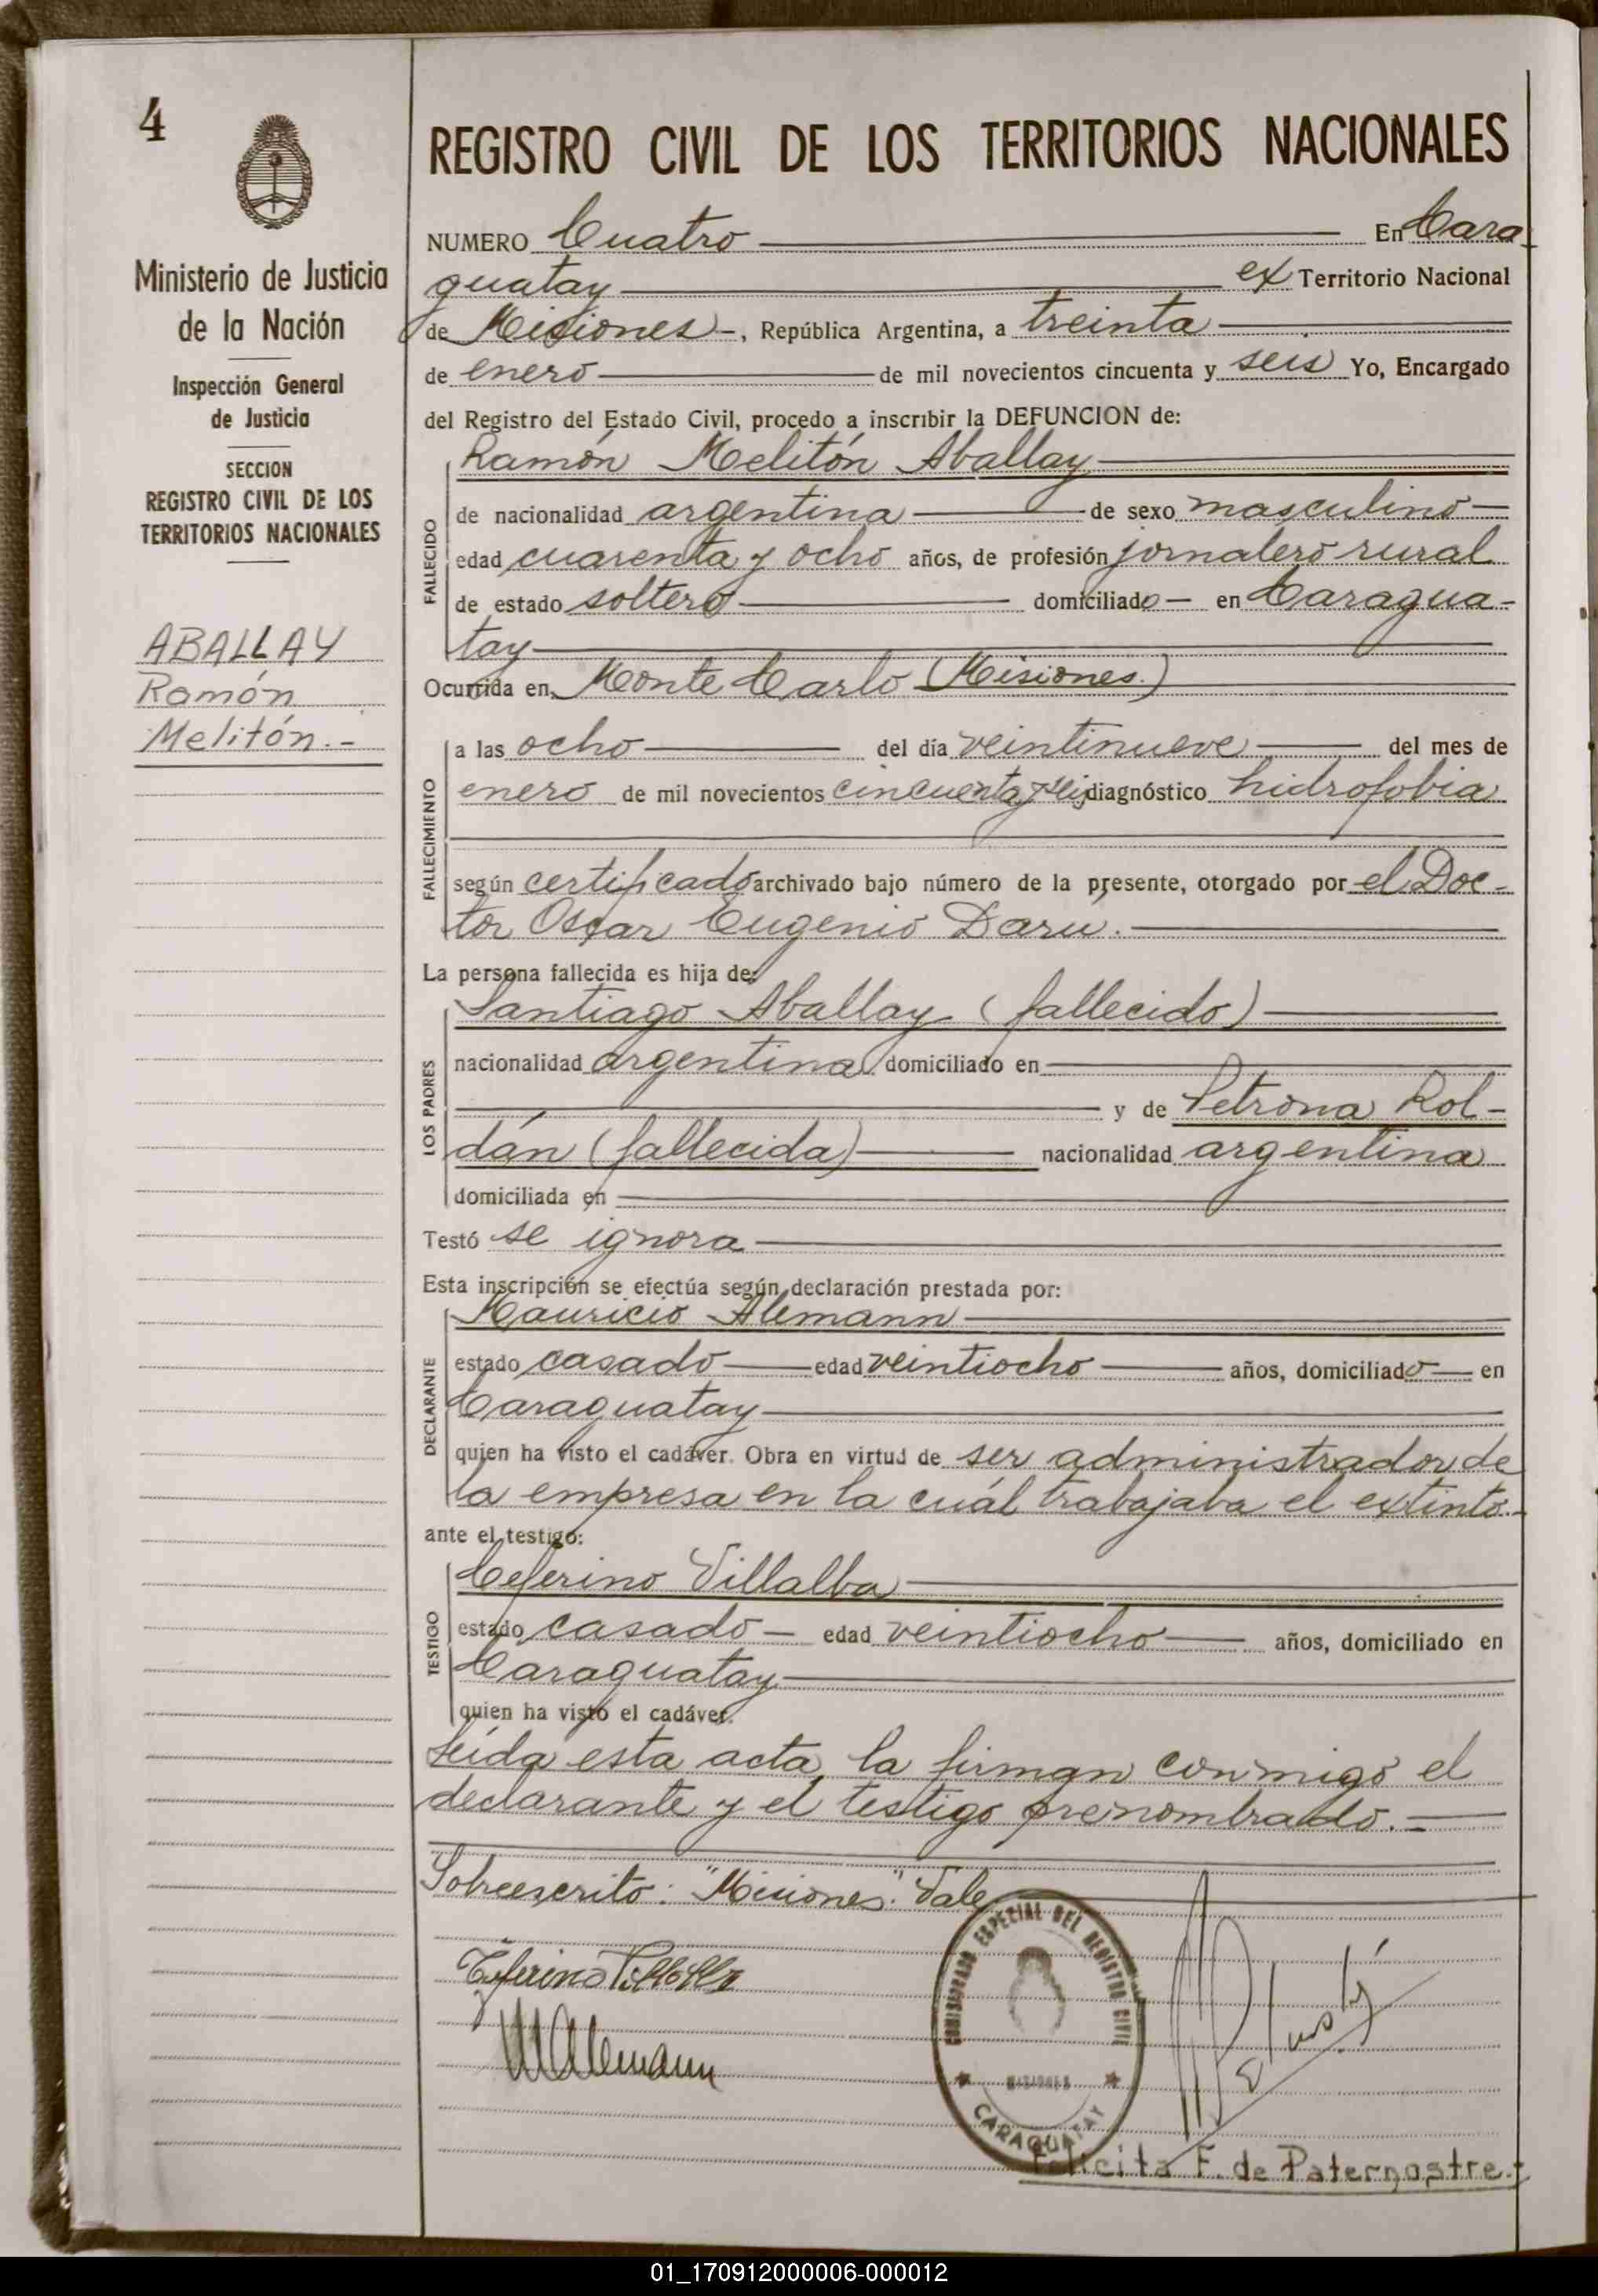 4
Ministerio de Justicia
de la Nación
Inspección General
de Justicia
SECCION
REGISTRO CIVIL DE LOS
TERRITORIOS NACIONALES
ABALLAY
Ramón
Melitón.-
REGISTRO CIVIL DE LOS TERRITORIOS NACIONALES
NUMERO Cuatro En Cara
guatay ex Territorio Nacional
de Misiones -, República Argentina, a treinta
de enero de mil novecientos cincuenta y seis Yo, Encargado
del Registro del Estado Civil, procedo a inscribir la DEFUNCION de:
FALLECIDO
Ramón Melitón Aballay
de nacionalidad argentina de sexo masculino
edad cuarenta y ocho años, de profesión jornalero rural
de estado soltero domiciliado en Caragua-
tay
Ocurrida en Monte Carlo (Misiones)
FALLECIMIENTO
a las ocho del día veintinueve del mes de
enero de mil novecientos cincuenta y seis diagnóstico hidrofobia
según certificado archivado bajo número de la presente, otorgado por el Doc-
tor Oscar Eugenio Daru.
La persona fallecida es hija de:
LOS PADRES
Santiago Aballay (fallecido)
nacionalidad argentina domiciliado en
y de Petrona Rol-
dán (fallecida) nacionalidad argentina
domiciliada en
Testó se ignora
Esta inscripción se efectúa según declaración prestada por:
DECLARANTE
Mauricio Alemann
estado casado edad veintiocho años, domiciliado en
Caraguatay
quien ha visto el cadáver. Obra en virtud de ser administrador de
la empresa en la cuál trabajaba el extinto.-
ante el testigo:
TESTIGO
Ceferino Villalba
estado casado - edad veintiocho años, domiciliado en
Caraguatay
quien ha visto el cadáver.
Leída esta acta, la firman conmigo el
declarante y el testigo prenombrado.-
Sobreescrito: "Misiones". Vale
Ceferino Villalba
MAlemann
COMISARIADO ESPECIAL DEL REGISTRO CIVIL
MISIONES
CARAGUATAY
Felicita F. de Paternostre.-
01_170912000006-000012